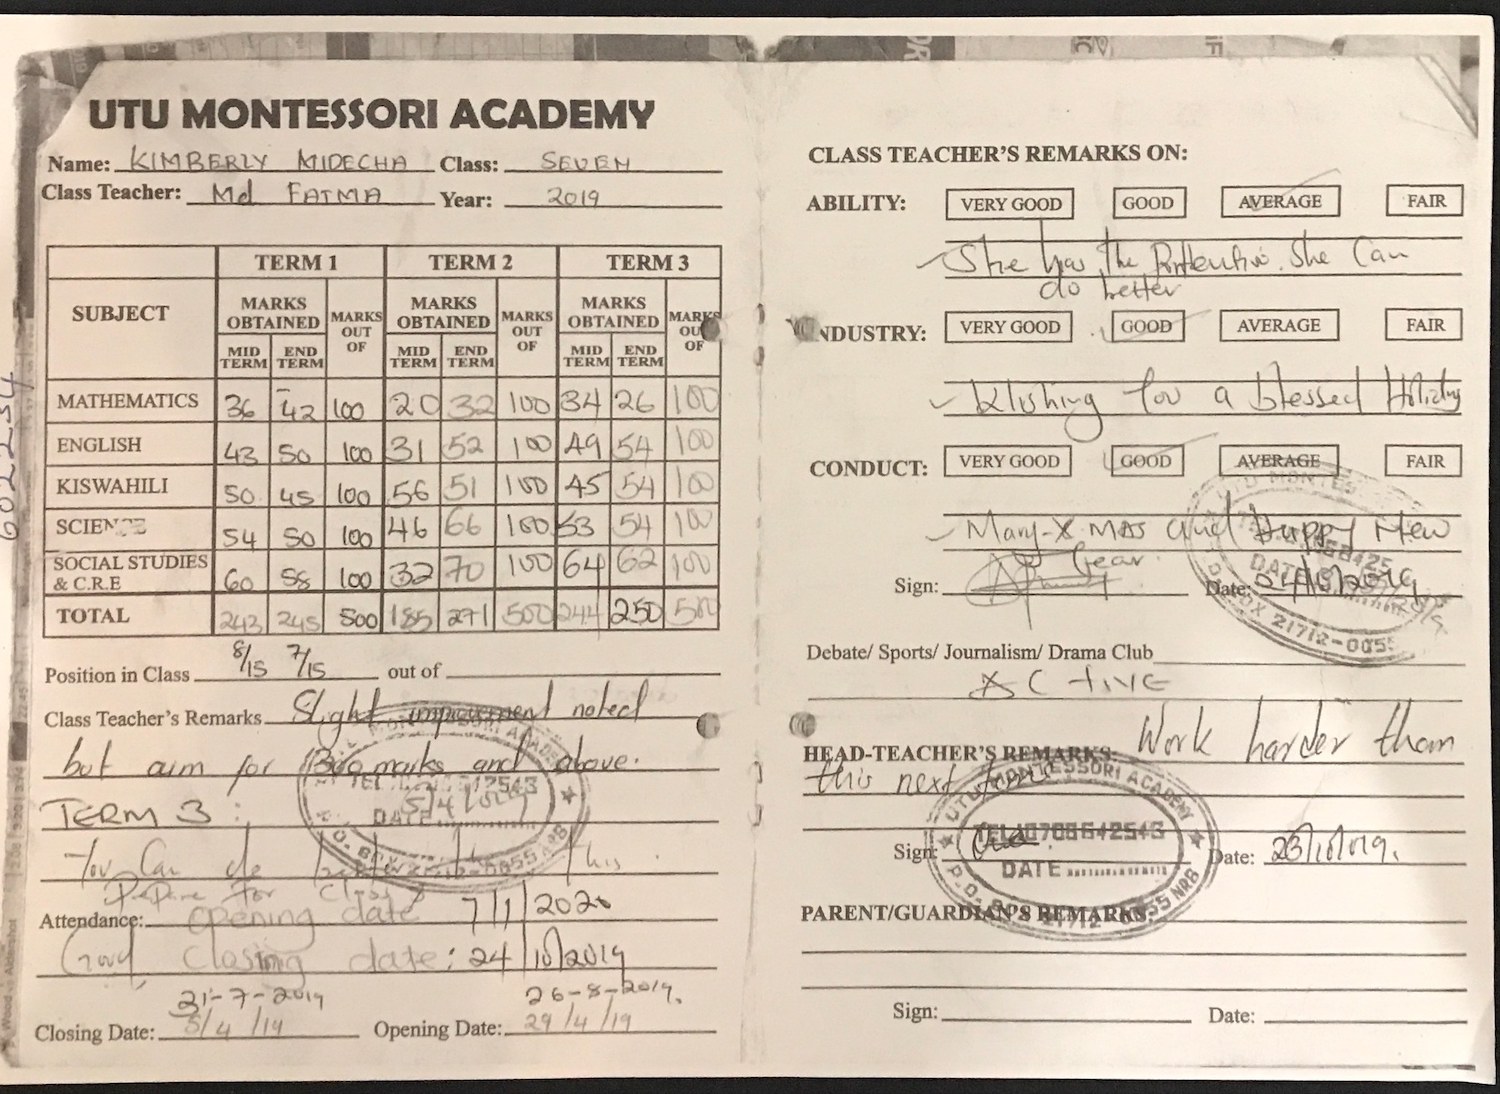 UTU MONTESSORI ACADEMY
Name: KIMBERLY MIDECHA Class: SEVEN
Class Teacher: Md FATMA Year: 2019
TERM 1 TERM 2 TERM 3
SUBJECT MARKS OBTAINED MARKS OUT OF MARKS OBTAINED MARKS OUT OF MARKS OBTAINED MARKS OUT OF
MID TERM END TERM MID TERM END TERM MID TERM END TERM
MATHEMATICS 36 42 100 20 32 100 34 26 100
ENGLISH 43 50 100 31 52 100 49 54 100
KISWAHILI 50 45 100 56 51 100 45 54 100
SCIENCE 54 50 100 46 66 100 53 54 100
SOCIAL STUDIES & C.R.E 60 58 100 32 70 100 64 62 100
TOTAL 243 245 500 185 271 500 244 250 500
Position in Class 8/15 7/15 out of
Class Teacher's Remarks Slight improvement noted
but aim for 300 marks and above.
TERM 3:
You Can do better than this
Prepare For Class 8
Attendance: opening date 7/1/2020
Good closing date: 24/10/2019
21-7-2019 26-8-2019.
Closing Date: 5/4/19 Opening Date: 29/4/19
CLASS TEACHER'S REMARKS ON:
ABILITY: VERY GOOD GOOD AVERAGE FAIR
She has the She Can
do better
INDUSTRY: VERY GOOD GOOD AVERAGE FAIR
Wishing You a blessed Holiday
CONDUCT: VERY GOOD GOOD AVERAGE FAIR
Mary-X mas and Happy New
Year.
Sign: Date:
Debate/ Sports/ Journalism/ Drama Club
ACTIVE
HEAD-TEACHER'S REMARKS: Work harder than
this next
UTU MONTESSORI ACADEMY
TEL: 0706642543
DATE
P.O. BOX 21712-0055 NRB
Sign: Date: 23/10/019.
PARENT/GUARDIAN'S REMARKS:
Sign: Date:
602234